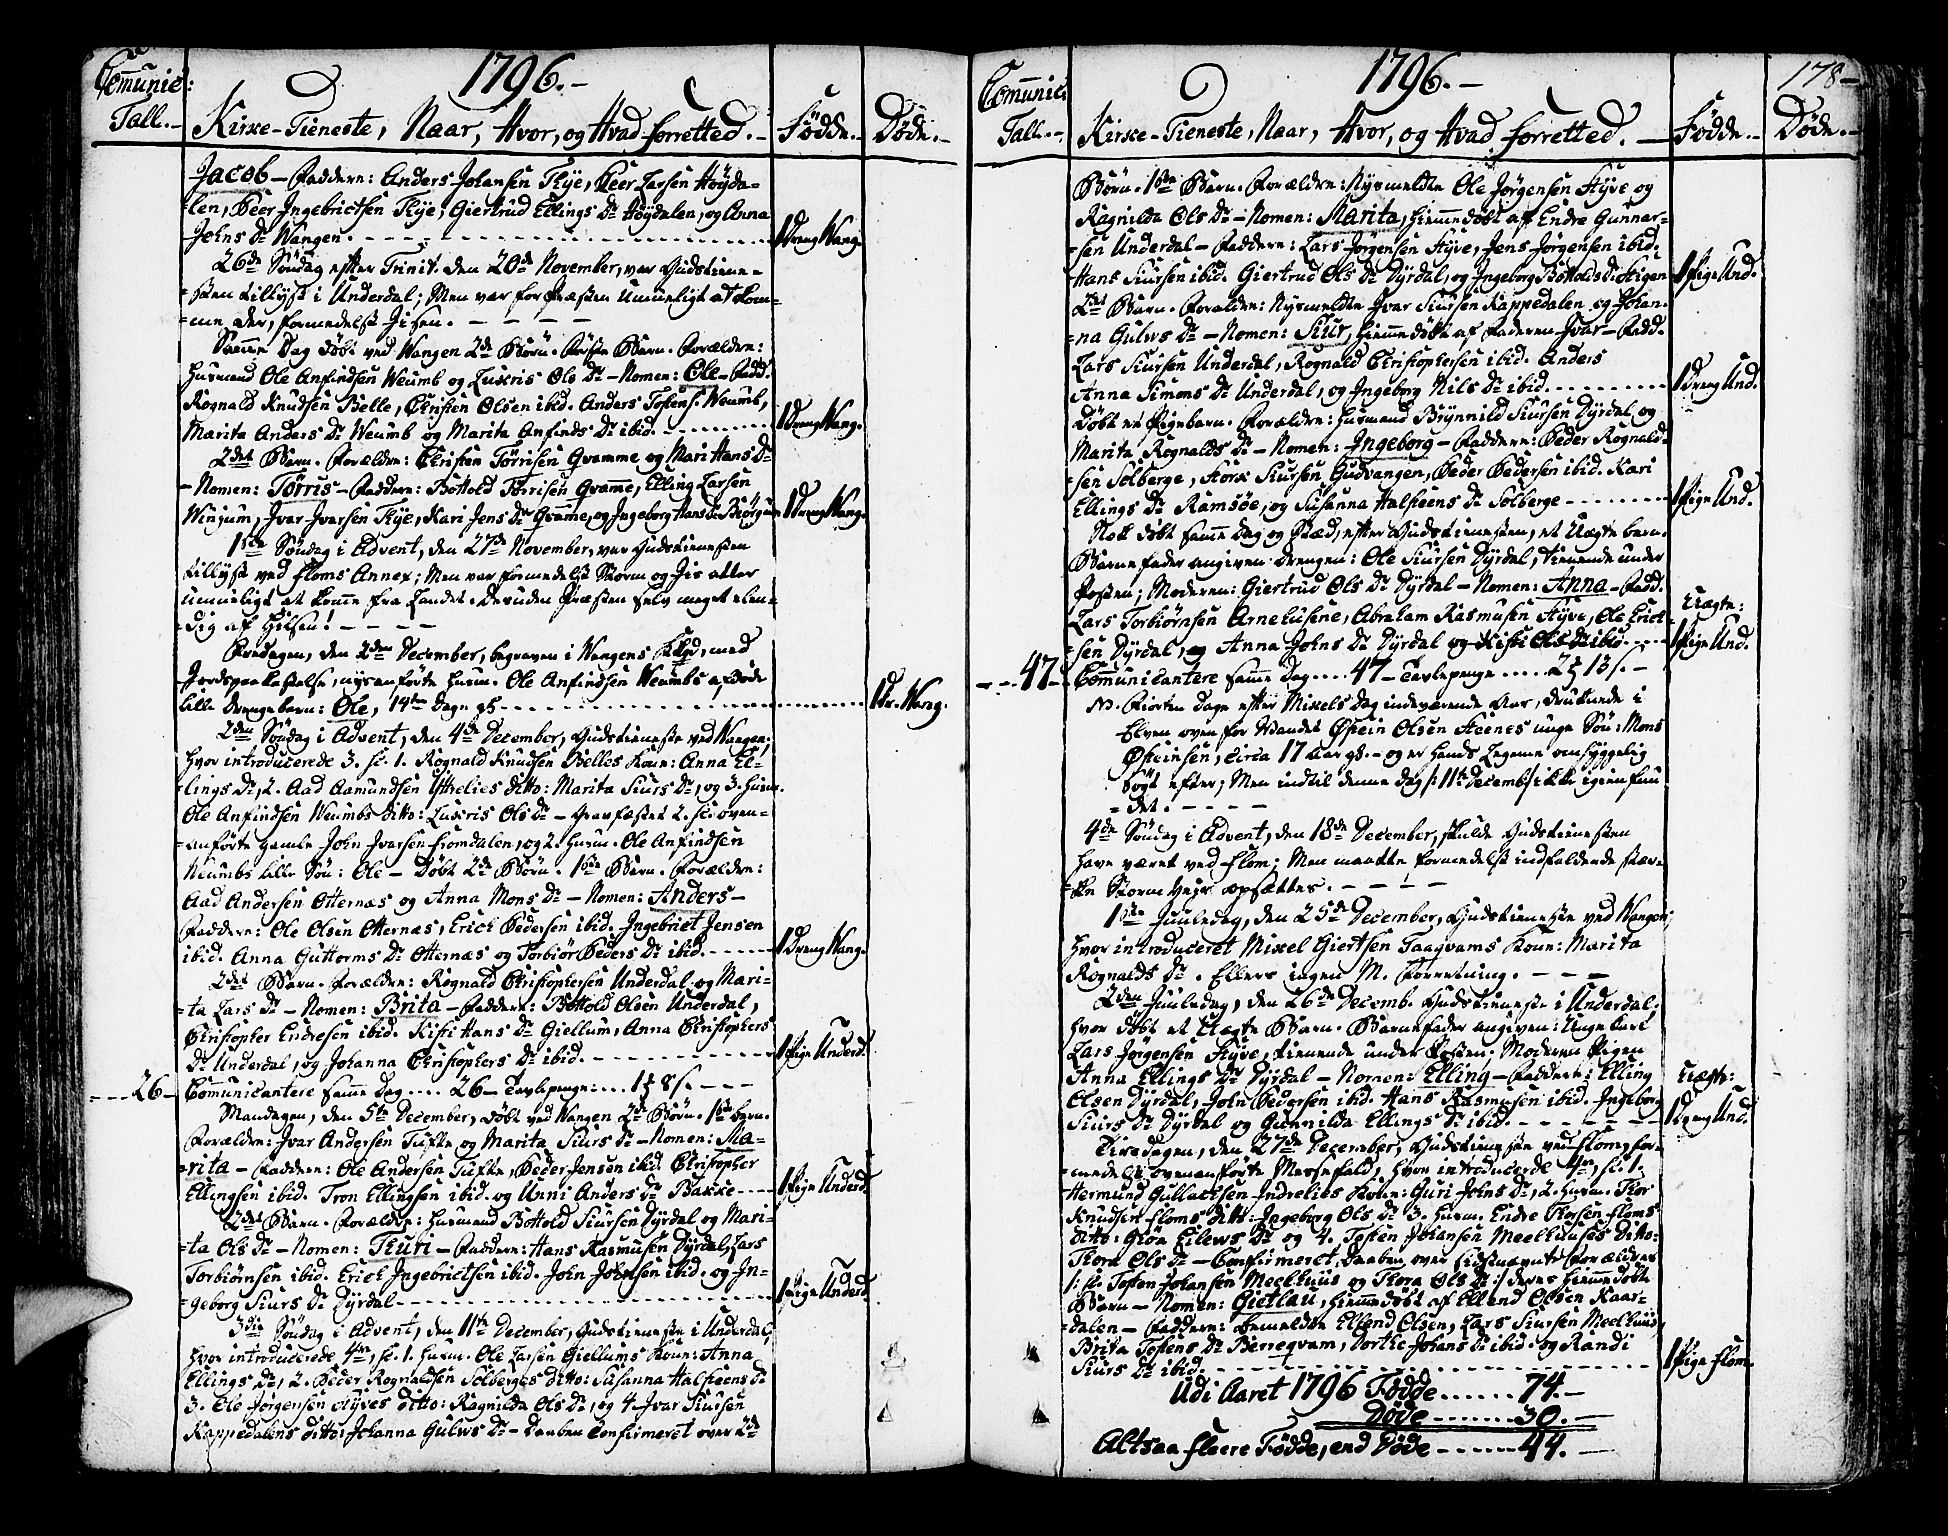 Comunic: 1796.-
Tall.- Kirke-Tieneste, Naar, Hvor, og Hvad forretted.- Fødde.- Døde.-
Jacob - Faddere: Anders Johansen Skye, Peer Larsen Høyda-
-len, Peer Ingebrictsen Skye, Giertrud Ellings Dr Høydalen, og Anna
Johns Dr Wangen. 1 Dreng Wang.
26de Søndag efter Trinit. den 20de November, var Gudstiene-
-sten tillyst i Underdal; Men var for Præsten umueligt at kom-
-me der, formedelst Jisen.
Samme Dag døbt ved Wangen 2de Børn. Første Barn. Forældre:
Husmand Ole Anfindsen Weumb og Lucris Ols Dr - Nomen: Ole - Fadd.
Rognald Knudsen Belle, Christen Olsen ibid. Anders Tostens. Weumb,
Marita Anders Dr Weumb og Marita Anfinds Dr ibid. 1 Dreng Wang.
2det Barn. Forældre: Christen Tørrisen Qvamme og Mari Hans Dr
- Nomen: Tørris - Faddere: Bottold Tørrisen Qvame, Elling Larsen
Winjum, Ivar Ivarsen Skye, Kari Jens Dr Qvame, og Ingeborg Hans Dr Biørgum 1 Dreng Wang.
1ste Søndag i Advent, den 27de November, var Gudstienesten
tillyst ved Floms Annex; Men var formedelst Storm og Jis atter
umueligt at komme fra Landet. Desuden Præsten selv meget elen-
-dig af Hilsen!
Fredagen, den 2den December, begraven i Wangens Kird, med
Jordspaakastelse, nysanførte Husm. Ole Anfindsen Weumbs afdøde
lille Drengebarn: Ole, 14ten Dage gl. 1 Dr. Wang.
2den Søndag i Advent, den 4de December, Gudstieneste ved Wangen;
hvor introducerede 3. sc. 1. Rognald Knudsen Belles Kone: Anna El-
-lings Dr, 2. Aad Aamundsen ditto: Marita Siurs Dr, og 3. Husm.
Ole Anfindsen Weumbs ditto: Lucris Ols Dr - Gravfæstet 2. sc. oven-
-anførte gamle John Ivarsen Fromdalen, og 2. Husm. Ole Anfindsen
Weumbs lille Søn: Ole - Døbt 2de Børn. 1ste Barn. Forældre:
Aad Andersen Otternæs og Anna Mons Dr - Nomen: Anders -
Faddere: Ole Olsen Otternæs, Erich Pedersen ibid. Ingebrict Jensen
ibid. Anna Guttorms Dr Otternæs og Torbiør Peders Dr ibid. 1 Dreng Wang.
2det Barn. Forældre: Rognald Christophersen Underdal og Mari-
-ta Lars Dr - Nomen: Brita - Faddere: Bottold Olsen Underdal,
Christopher Endresen ibid. Kisti Hans Dr Giellum, Anna Christophers
Dr Underdal, og Johanna Christophers Dr ibid. 1 Pige Underd.
26 - Comunicantere samme Dag .... 26 - Tavlepenge .... 1 8 s.
Mandagen, den 5te December, døbt ved Wangen 2de Børn. 1ste barn.
Forældre: Ivar Andersen Tufte og Marita Siurs Dr - Nomen: Ma-
-rita - Faddere: Ole Andersen Tufte, Peder Jensen ibid. Christopher
Ellingsen ibid. Tron Ellingsen ibid. og Unni Anders Dr Bakke 1 Pige Underd.
2det Barn. Forældre: Husmand Bottold Siursen Dyrdal og Mari-
-ta Ols Dr - Nomen: Thuri - Faddere: Hans Rasmusen Dyrdal, Lars
Torbiørnsen ibid. Erich Ingebrictsen ibid. John Johnsen ibid. og In-
-geborg Siurs Dr Dyrdal 1 Pige Underd.
3die Søndag i Advent, den 11te December, Gudstieneste i Underdal,
hvor introducerede 4re, sc. 1. Husm. Ole Larsen Giellums Kone: Anna
Ellings Dr, 2. Peder Rognaldsen Solberges ditto: Susanna Halsteens Dr
3. Ole Jørgensen Styves ditto: Ragnilda Ols Dr, og 4. Ivar Siursen
Kappedalens ditto: Johanna Gulws Dr - Daaben Confirmeret over 2de
Comunic: 1796.- 178-
Tall.- Kirke-Tieneste, Naar, Hvor, og Hvad forretted.- Fødde.- Døde.-
Børn. 1ste Barn. Forældre: Nysmeldte Ole Jørgensen Styve og
Ragnilda Ols Dr - Nomen: Marita, hiemmedøbt af Endre Gunnar-
-sen Underdal - Faddere: Lars Jørgensen Styve, Jens Jørgensen ibid.
Hans Siursen ibid. Giertrud Ols Dr Dyrdal, og Ingeborg Bottolds Dr Stigen 1 Pige Und.
2det Barn. Forældre: Nysmeldte Ivar Siursen Kappedalen og Johan-
-na Gulws Dr - Nomen: Siur, hiemmedøbt af Faderen Ivar - Fadd.
Lars Siursen Underdal, Rognald Christophersen ibid. Anders
Anna Simms Dr Underdal, og Ingeborg Nils Dr ibid. 1 Dreng Und.
Døbt et Pigebarn. Forældre: Husmand Brynnild Siursen Dyrdal og
Marita Rognalds Dr - Nomen: Ingeborg - Faddere: Peder Rognald-
-sen Solberge, Storx Siursen Gudvangen, Peder Pedersen ibid. Kari
Ellings Dr Ramsøe, og Susanna Halsteens Dr Solberge 1 Pige Und.
Nok døbt samme Dag og Stæd, efter Gudstienesten, et Uægte barn.
Barnefader angiven Drengen: Ole Siursen Dyrdal, tienende under
Posten; Moderen: Giertrud Ols Dr Dyrdal - Nomen: Anna - Fadd.
Lars Torbiørnsen Arnehusene, Abraham Rasmusen Styve, Ole Erich- Uægte:
-sen Dyrdal, og Anna Johns Dr Dyrdal og Kisti Ols Dr ibid 1 Pige Und.
47 - Comunicantere samme Dag .... 47 - Tavlepenge ..... 2 13 s. -
NB. Fiorten Dage efter Mikels Dag indeværende Aar, druknede i
Elven oven for Wandet Østein Olsen Steenes unge Søn: Mons
Østeinsen, circa 17 Aar gl. - og er hands Legeme omhyggelig
søgt efter; Men indtil denne Dag /: 11te Decemb :/ ikke igienfun-
-det.
4de Søndag i Advent, den 18de December, skulde Gudstienesten
have været ved Flom; Men maatte formedelst indfaldende stær-
-ke Storm Veir opsættes.
1ste Juuledag, den 25de December, Gudstieneste ved Wangen;
hvor introduceret Mikel Giertsen Taagvams Kone: Marita
Rognalds Dr. Ellers ingen M. Forretning.
2den Juuledag, den 26de Decemb. Gudstieneste i Underdal;
hvor døbt et Uægte Barn. Barnefader angiven: Unge Karl
Lars Jørgensen Styve, tienende under Posten; Moderen Pigen
Anna Ellings Dr Dyrdal - Nomen: Elling - Faddere: Elling Uægte:
Olsen Dyrdal, John Pedersen ibid. Hans Rasmusen ibid. Ingeborg
Siurs Dr Dyrdal og Gunnilda Ellings Dr ibid. 1 Dreng Und.
Tirsdagen, den 27de December, Gudstieneste ved Flom, for-
-medelst ovenanførte Messefald, hvor introducerede 4re, sc. 1.
Hermund Gullachsen Indrelies Kone: Guri Johns Dr, 2. Husm. Thor
Knudsen Floms ditto: Ingeborg Ols Dr 3. Husm. Endre Thorsen Floms
ditto: Gioe Eilews Dr og 4. Tosten Johansen Meelhuuses Ditto:
Thora Ols Dr - Confirmeret Daaben over sidstnævnte Forældres
/: sc. Tosten Johansen Meelhuus og Thora Ols Dr :/ deres hiemmedøbte
Barn - Nomen: Gietlau, hiemmedøbt af Ellend Olsen Kaar-
-dalen - Faddere: Bemeldte Ellend Olsen, Lars Siursen Meelhuus,
Brita Tostens Dr Berreqvam, Dorthe Johans Dr ibid. og Randi
Siurs Dr ibid. 1 Pige Flom.
Udi Aaret 1796 Fødde ...... 74.-
Døde ------ 30.-
Altsaa fleere Fødde, end Døde ------ 44.-